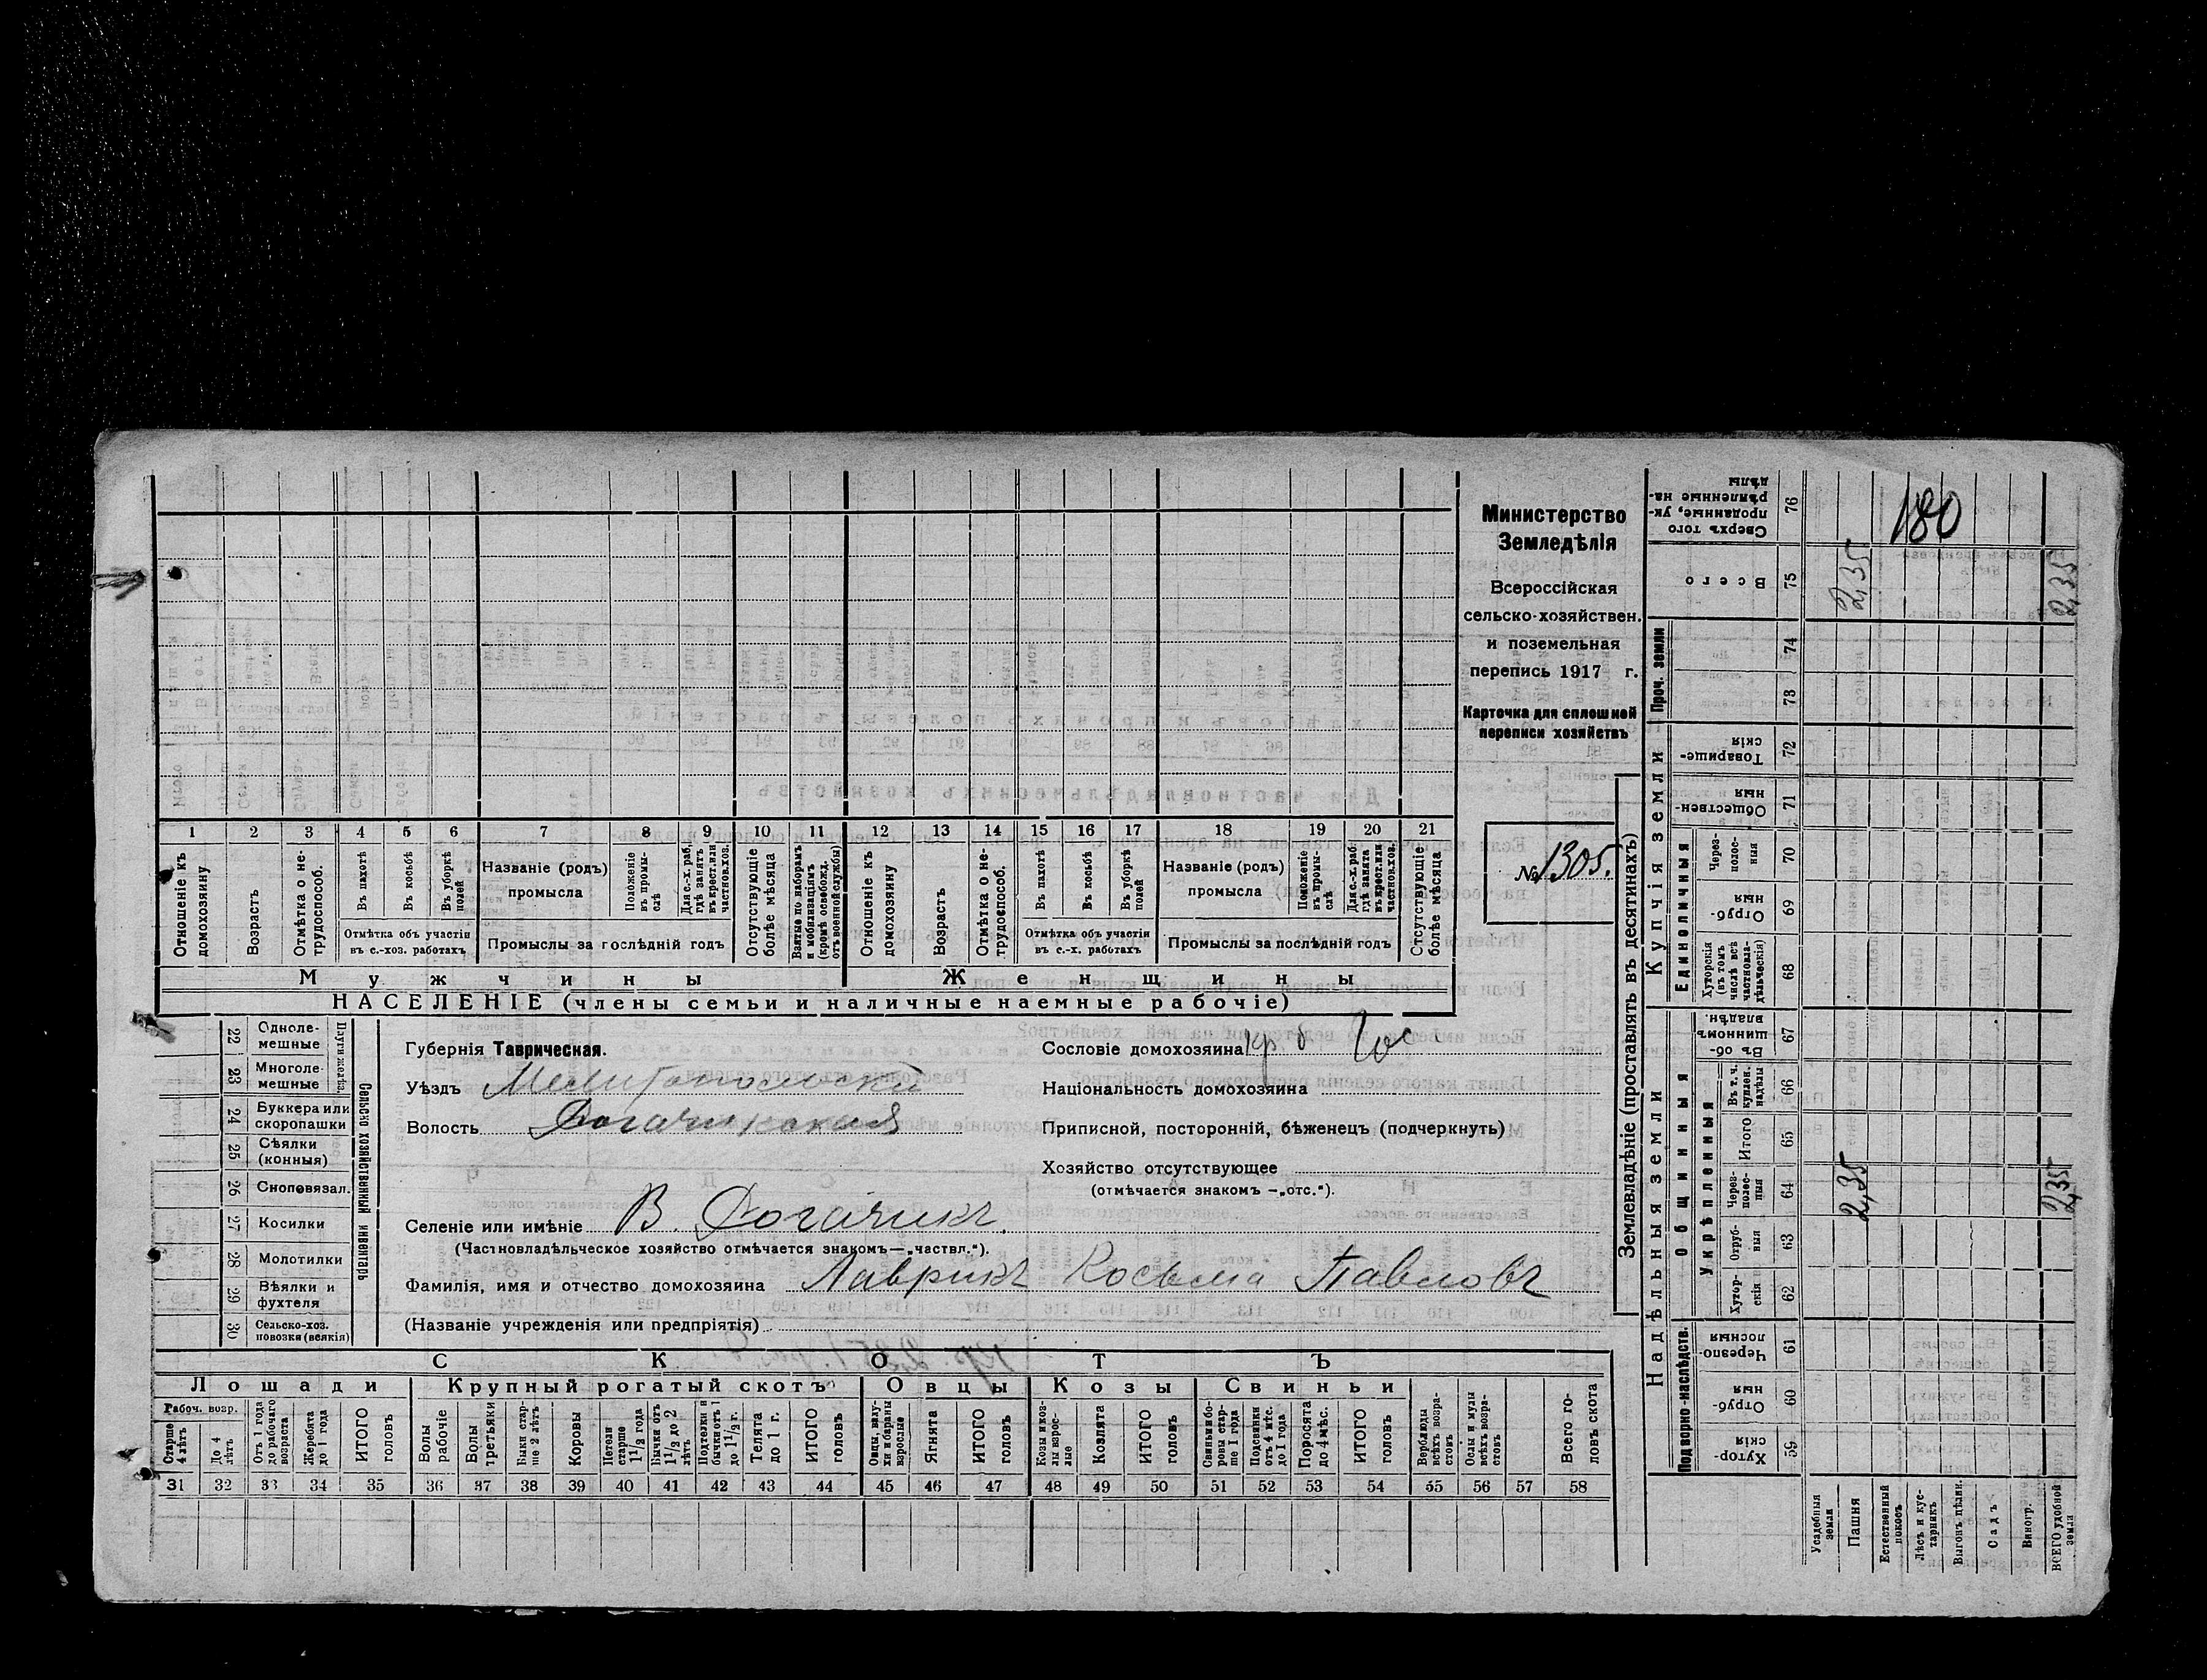 Министерство
Земледѣлія
Всероссійская
сельско-хозяйствен.
и поземельная
перепись 1917 г.
Карточка для сплошной
переписи хозяйствъ
№ 1305.
1 2 3 4 5 6 7 8 9 10 11 12 13 14 15 16 17 18 19 20 21
Отношеніе къ домохозяину
Возрастъ
Отмѣтка о не-трудоспособ.
Въ пахотѣ
Въ косьбѣ
Въ уборкѣ полей
Отмѣтка объ участіи въ с.-хоз. работахъ
Названіе (родъ) промысла
Положеніе въ промы-слѣ
Для с.-х. раб. гдѣ занятъ въ крест. или частнов. хоз.
Промыслы за послѣдній годъ
Отсутствующіе болѣе мѣсяца
Взятые по наборамъ и мобилизаціямъ (кромѣ освобожд. отъ военной службы)
Отношеніе къ домохозяину
Возрастъ
Отмѣтка о не-трудоспособ.
Въ пахотѣ
Въ косьбѣ
Въ уборкѣ полей
Отмѣтка объ участіи въ с.-х. работахъ
Названіе (родъ) промысла
Положеніе въ промы-слѣ
Для с.-х. раб. гдѣ занята въ крест. или частнов. хоз.
Промыслы за послѣдній годъ
Отсутствующіе болѣе мѣсяца
Мужчины
Женщины
НАСЕЛЕНІЕ (члены семьи и наличные наемные рабочіе)
22 Одноле-мешные
23 Многоле-мешные
Плуги желѣз.
24 Буккера или скоропашки
25 Сѣялки (конныя)
26 Сноповязал.
27 Косилки
28 Молотилки
29 Вѣялки и фухтеля
30 Сельско-хоз. повозки (всякія)
Сельско хозяйственный инвентарь
Губернія Таврическая.
Уѣздъ Мелитопольскій
Волость Рогачикская
Селеніе или имѣніе В. Рогачикъ.
(Частновладѣльческое хозяйство отмѣчается знакомъ—„частвл.“).
Фамилія, имя и отчество домохозяина Лаврикъ Косьма Павловъ
(Названіе учрежденія или предпріятія)
Сословіе домохозяина кр.
Національность домохозяина
Приписной, посторонній, бѣженецъ (подчеркнуть)
Хозяйство отсутствующее
(отмѣчается знакомъ —„отс.“).
СКОТЪ
Лошади
Крупный рогатый скотъ
Овцы
Козы
Свиньи
Рабоч. возр.
Старше 4 лѣтъ
До 4 лѣтъ
Отъ 1 года до рабочаго возраста
Жеребята до 1 года
ИТОГО головъ
Волы рабочіе
Волы третьяки
Быки стар-ше 2 лѣтъ
Коровы
Нетели старше 1½ года
Бычки отъ 1½ до 2 лѣтъ
Подтелки и бычки отъ 1 до 1½ г.
Телята до 1 г.
ИТОГО головъ
Овцы, валу-хи и бараны взрослые
Ягнята
ИТОГО головъ
Козы и коз-лы взрос-лые
Козлята
ИТОГО головъ
Свиньи и бо-ровы стар-ше 1 года
Подсвинки отъ 4 мѣс. до 1 года
Поросята до 4 мѣс.
ИТОГО головъ
Верблюды всѣхъ возра-стовъ
Ослы и мулы всѣхъ возра-стовъ
Всего го-ловъ скота
31 32 33 34 35 36 37 38 39 40 41 42 43 44 45 46 47 48 49 50 51 52 53 54 55 56 57 58
Землевладѣніе (проставлять въ десятинахъ)
Надѣльныя земли
Купчія земли
Проч. земли
Подворно-наслѣдств.
Общинныя
Укрѣпленныя
Единоличныя
Хутор-скія 59
Отруб-ныя 60
Черезпо-лосныя 61
Хутор-скія 62
Отруб-ныя 63
Через-полос-ныя 64
Итого 65
Въ т. ч. куплен. надѣлы 66
Въ об-щинномъ владѣн. 67
Хуторскія (въ томъ числѣ всѣ частновла-дѣльческія) 68
Отруб-ныя 69
Через-полос-ныя 70
Обществен-ныя 71
Товарище-скія 72
73
74
Всего 75
Сверхъ того проданные, ук-рѣпленные на-дѣлы 76
Усадебная земля
Пашня
Естественный покосъ
Лѣсъ и кус-тарникъ
Выгонъ цѣлин.
Садъ
Виногр.
ВСЕГО удобной земли
180
2,35
2,35
2,35
2,35